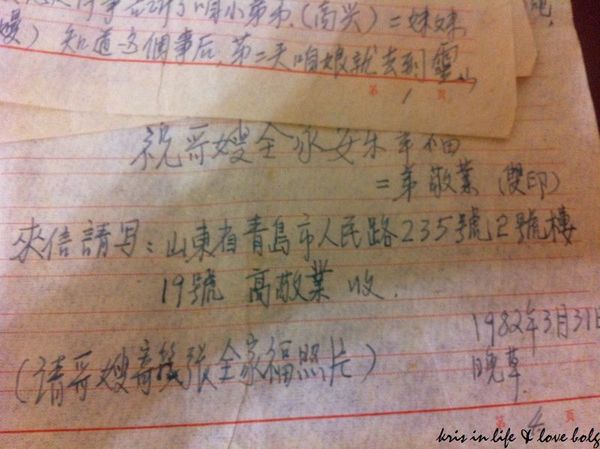 件事告訴了咱小弟弟(高兴)=妹妹
嫚) 知道这個事后,第二天咱娘就去到靈山
第 1 頁
祝哥嫂全家安乐幸福
=弟 敬業 (雙印)
來信請写:山東省青島市人民路235號2號樓
19號 高敬業 收.
1982年3月31日
(请哥嫂寄张全家福照片)
晚草.
第 4 頁
kris in life & love bolg